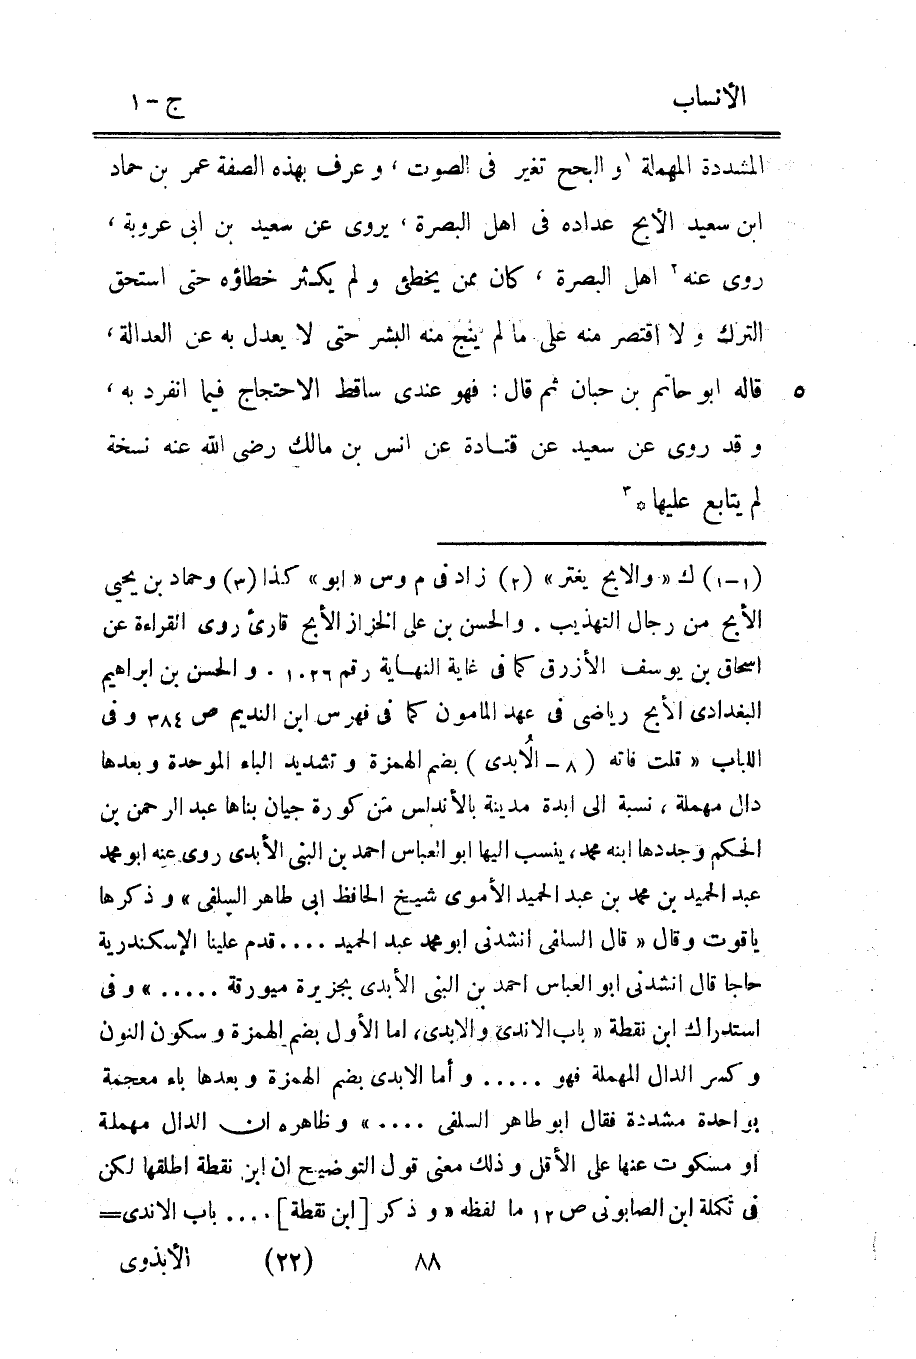 الأنساب ج - ١
المشددة المهملة ١و البحح تغير فى الصوت ، و عرف بهذه الصفة عمر بن حماد
ابن سعيد الأبح عداده فى اهل البصرة ، يروى عن سعيد بن ابى عروبة ،
روى عنه٢ اهل البصرة ، كان ممن يخطئ و لم يكثر خطاؤه حتى استحق
الترك و لا اقتصر منه على ما لم يَنجُ منه البشر حتى لا يعدل به عن العدالة ،
٥ قاله ابو حاتم بن حبان ثم قال : فهو عندى ساقط الاحتجاج فيما انفرد به ،
و قد روى عن سعيد عن قتادة عن انس بن مالك رضى الله عنه نسخة
لم يتابع عليها * ٣
(١-١) ك « والابح يغتر » (٢) زاد فى م وس « ابو » كذا (٣) وحماد بن يحيى
الأبح من رجال التهذيب . والحسن بن على الخزاز الأبح قارئ روى القراءة عن
اسحاق بن يوسف الأزرق كما فى غاية النهاية رقم ١٠٢٦ . و الحسن بن ابراهيم
البغدادى الأبح رياضى فى عهد المامون كما فى فهرس ابن النديم ص ٣٨٤ و فى
اللباب « قلت فاته ( ٨ - الُابدى ) بضم الهمزة و تشديد الباء الموحدة و بعدها
دال مهملة ، نسبة الى ابدة مدينة بالأندلس من كورة جيان بناها عبد الرحمن بن
الحكم وجددها ابنه محمد ، ينسب اليها ابو العباس احمد بن البنى الأبدى روى عنه ابو محمد
عبد الحميد بن محمد بن عبد الحميد الأموى شيخ الحافظ ابى طاهر السلفى » و ذكرها
ياقوت وقال « قال السافى انشدنى ابو محمد عبد الحميد .... قدم علينا الإسكندرية
حاجا قال انشدنى ابو العباس احمد بن البنى الأبدى بجزيرة ميورقة ..... » و فى
استدراك ابن نقطة « باب الاندى والابدى، اما الأول بضم الهمزة و سكون النون
و كسر الدال المهملة فهو ..... و أما الابدى بضم الهمزة و بعدها باء معجمة
بواحدة مشددة فقال ابو طاهر السلفى .... » و ظاهره ان الدال مهملة
او مسكوت عنها على الأقل و ذلك معنى قول التوضيح ان ابن نقطة اطلقها لكن
فى تكملة ابن الصابونى ص ١٢ ما لفظه « و ذكر [ ابن نقطة ] .... باب الاندى=
٨٨ (٢٢) الأبذوى